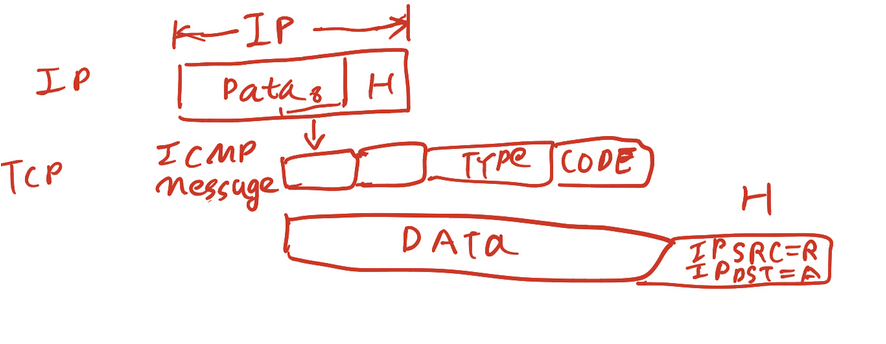 IP
IP
Data 8 H
TCP
ICMP
Message
TYPE CODE
H
DATA
IP SRC=R
IP DST=A